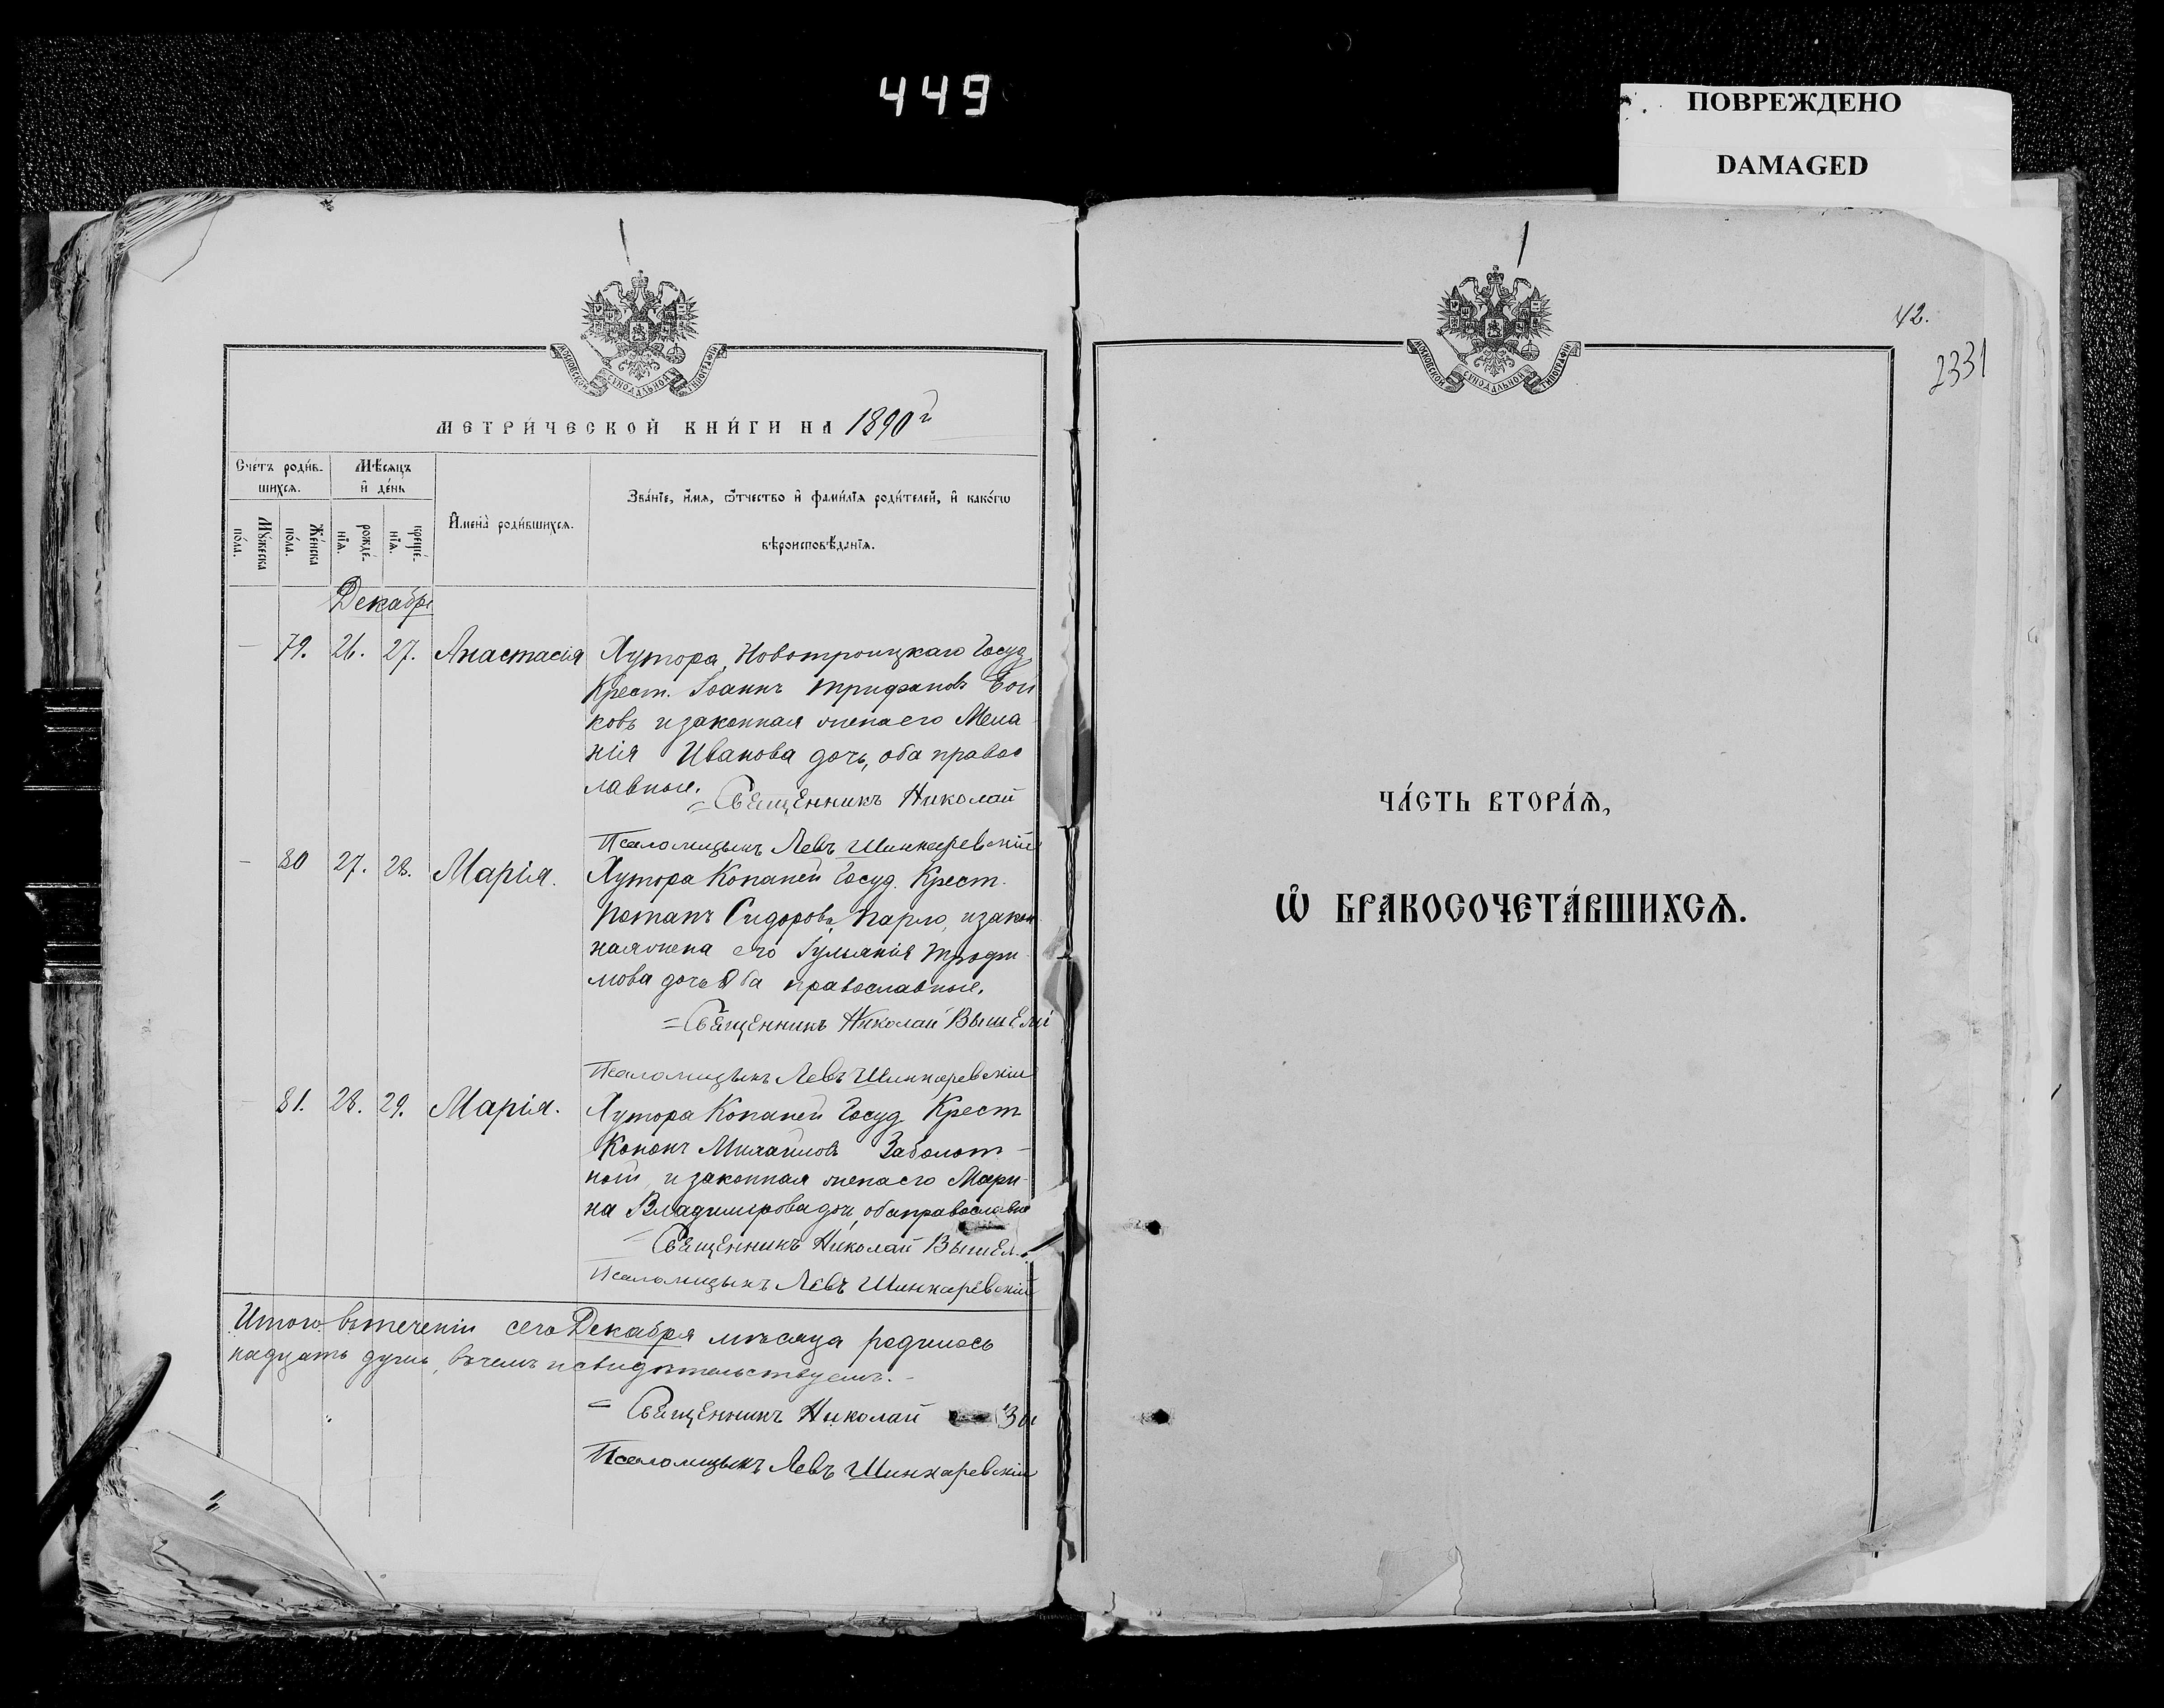 449
ПОВРЕЖДЕНО
DAMAGED
МОСКОВСКОЙ СѴНОДАЛЬНОЙ ТИПОГРАФІИ
МЕТРИ́ЧЕСКОЙ КНИ́ГИ НА 1890 г
Сче́тъ роди́в-
шихся.
Мѣ́сяцъ
и҆ де́нь
Мꙋ́жеска
по́ла.
Же́нска
по́ла.
рожде́-
нїя.
креще́-
нїя.
И҆мена̀ роди́вшихся.
Зва́нїе, и҆́мя, ѻ҆́тчество и҆ фами́лїя роди́телей, и҆ како́гѡ
вѣроисповѣ́данїя.
Декабрь
— 79. 26. 27. Анастасія Хутора Новотроицкаго Госуд
Крест. Іоаннъ Трифановъ Бой
ковъ и законная жена его Мела
нія Иванова дочь, оба правос
лавные.
= Священникъ Николай
Псаломщикъ Левъ Шинкаревскій
— 80 27. 28. Марія. Хутора Копаней Госуд. Крест.
Романъ Сидоровъ Парло, и закон
ная жена его Іуліанія Трофи
мова дочь Оба православные.
= Священникъ Николай
Псаломщикъ Левъ Шинкаревскій
81. 28. 29. Марія. Хутора Копаней Госуд Крест
Кононъ Михаиловъ Заболот-
ной, и законная жена его Мари-
на Владимірова доч, оба православные
Священникъ Николай
Псаломщикъ Левъ Шинкаревскій
Итого въ теченіи сего Декабря мѣсяца родилось
надцать душъ, въ чемъ и свидѣтельствуемъ.-
= Священникъ Николай
Псаломщикъ Левъ Шинкаревскій
42.
2331
МОСКОВСКОЙ СѴНОДАЛЬНОЙ ТИПОГРАФІИ
ЧА́СТЬ ВТОРА́Я,
Ѽ БРАКОСОЧЕТА́ВШИХСЯ.